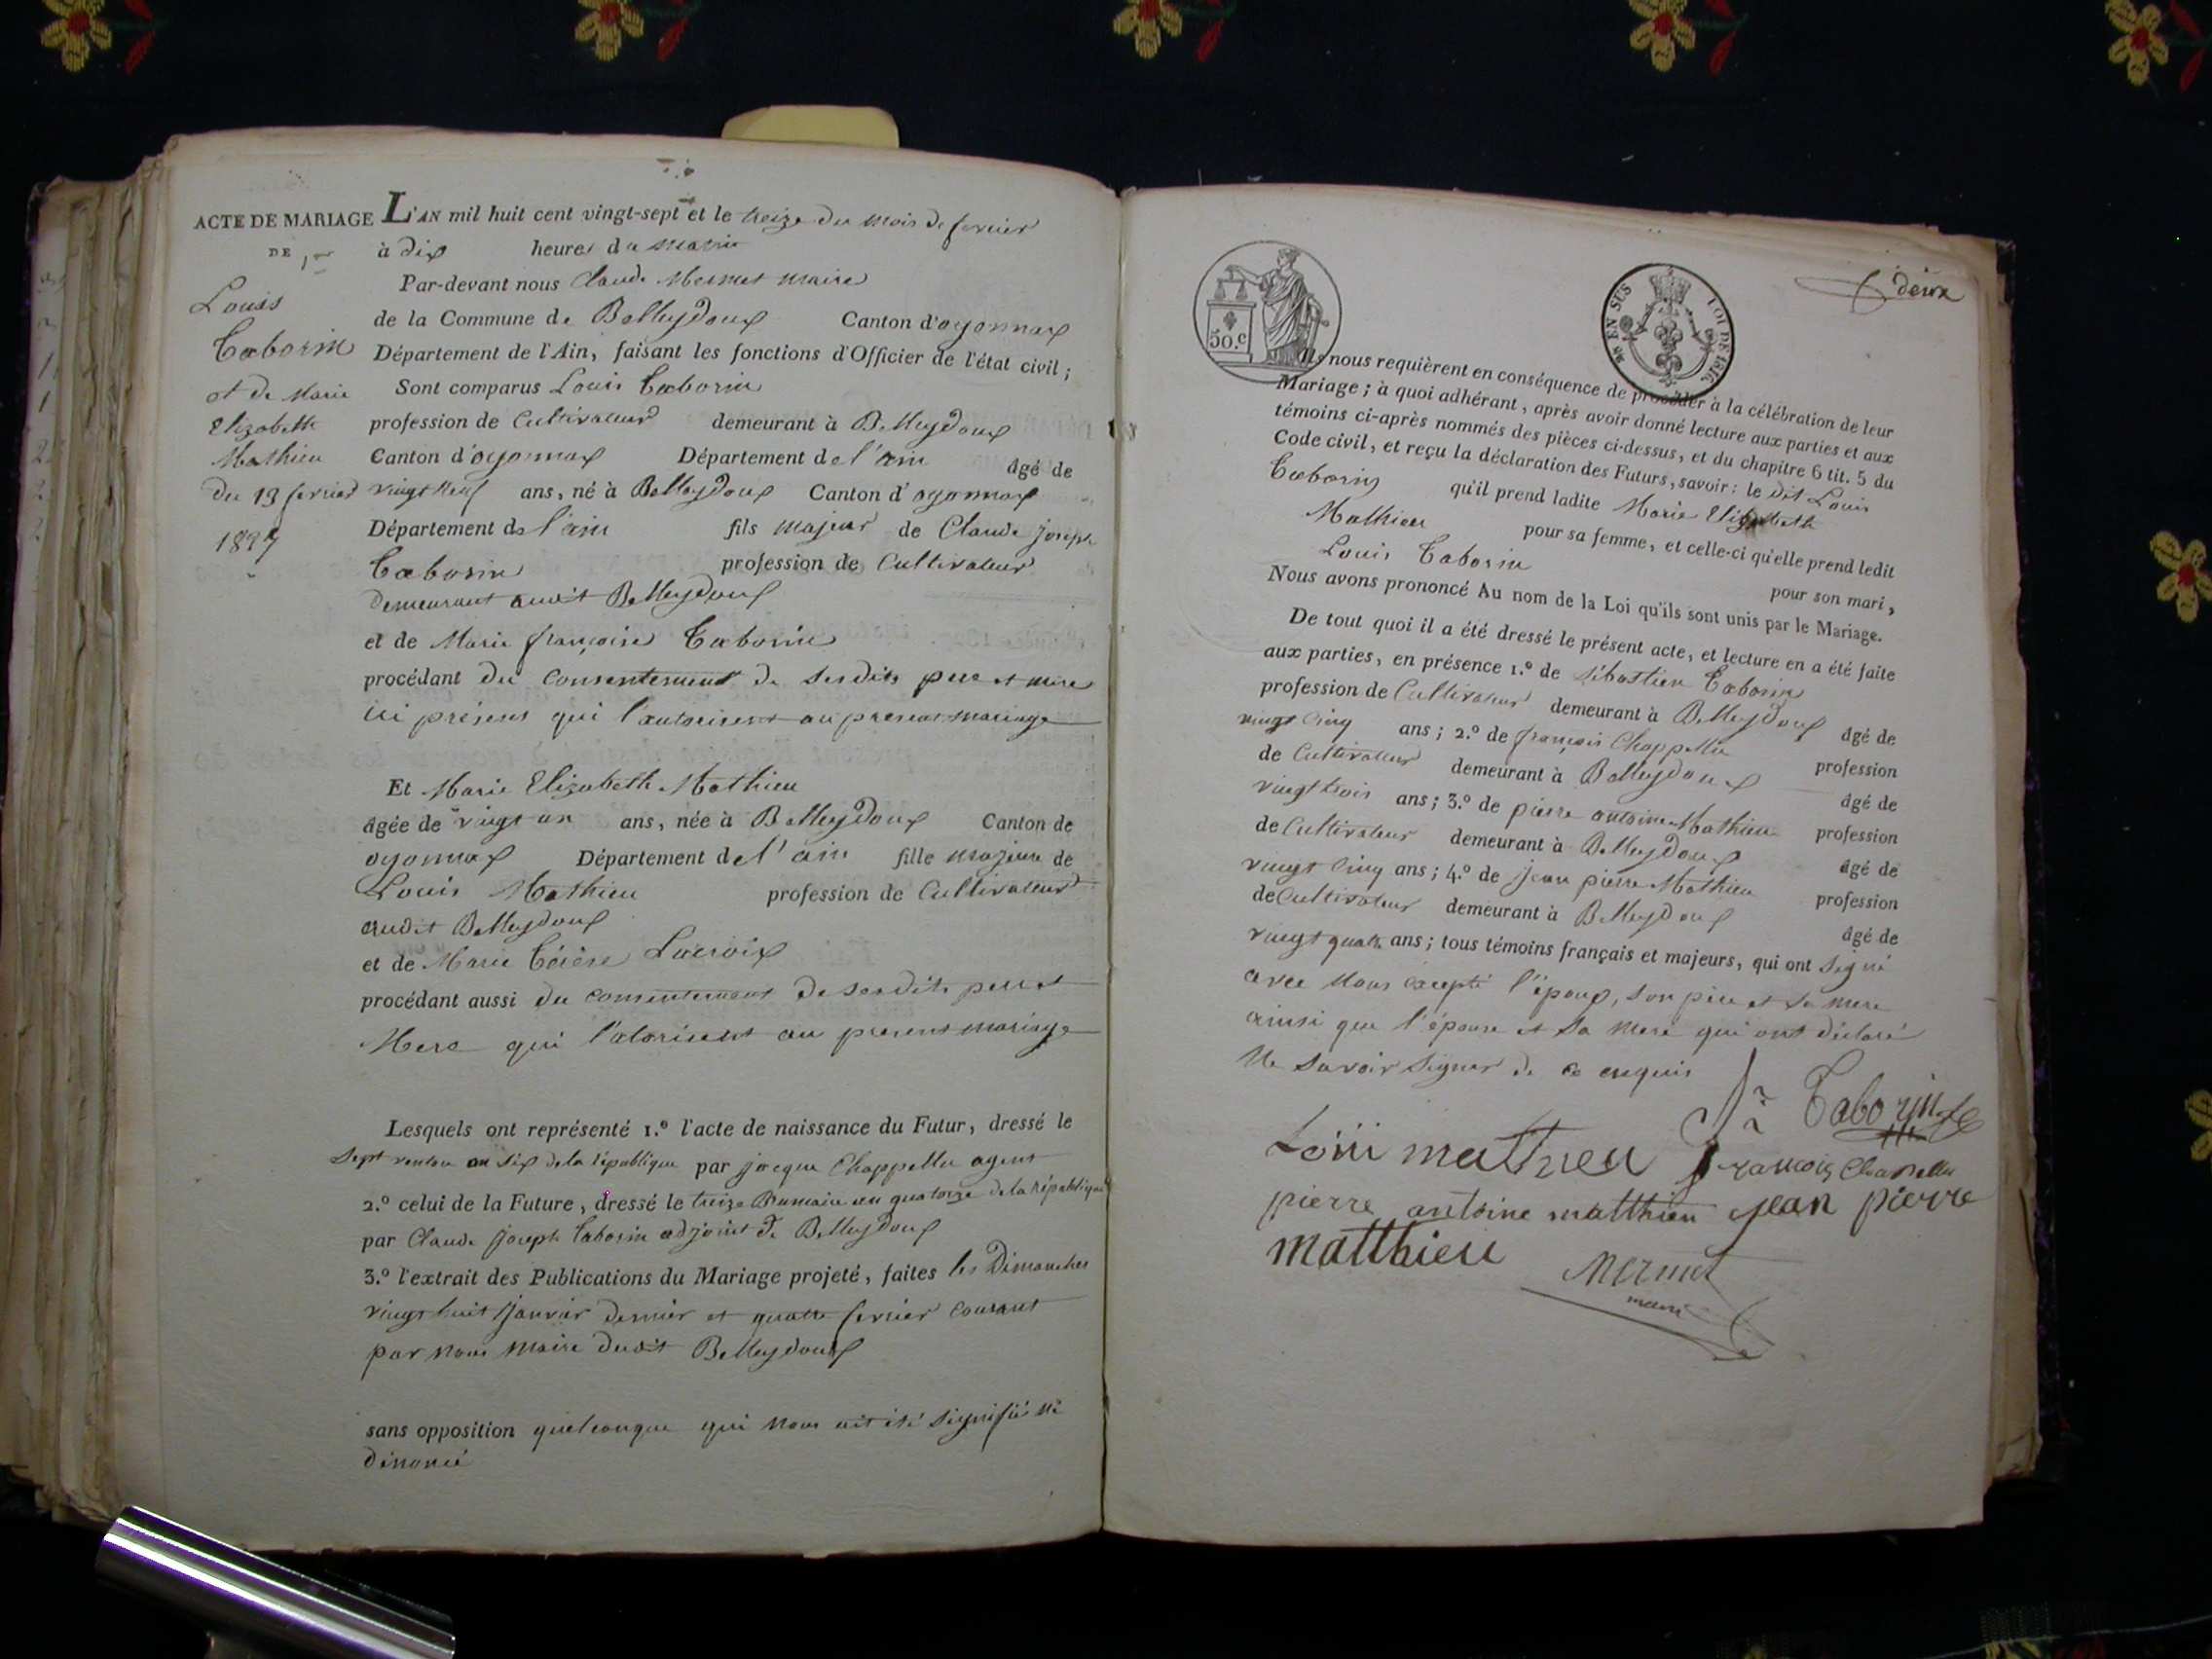 ACTE DE MARIAGE
DE
Louis
Taborin
et de Marie
Elizabeth
Mathieu
du 13 fevrier
1827
L'AN mil huit cent vingt-sept et le treize du mois de fevrier
à dix heures du matin
Par-devant nous Claude Mermet maire
de la Commune de Belleydoux Canton d'oyonnax
Département de l'Ain, faisant les fonctions d'Officier de l'état civil;
Sont comparus Louis Taborin
profession de Cultivateur demeurant à Belleydoux
Canton d'oyonnax Département de l'ain âgé de
vingt neuf ans, né à Belleydoux Canton d'oyonnax
Département de l'ain fils majeur de Claude joseph
Taborin profession de Cultivateur
demeurant audit Belleydoux
et de Marie françoise Taborin
procédant du Consentement de sesdits pere et mere
ici présens qui l'autorisent au present mariage
Et Marie Elizabeth Mathieu
âgée de vingt un ans, née à Belleydoux Canton de
oyonnax Département de l'ain fille majeure de
Louis Mathieu profession de Cultivateur
audit Belleydoux
et de Marie Térèse Lacroix
procédant aussi du consentement de sesdits pere et
Mere qui l'atorisent au present mariage
Lesquels ont représenté 1.º l'acte de naissance du Futur, dressé le
sept ventou an six de la république par jacque Chappellu agent
2.º celui de la Future, dressé le treize Brumaire an quatorze de la république
par Claude joseph taborin adjoint de Belleydoux
3.º l'extrait des Publications du Mariage projeté, faites les Dimanches
vingt huit janvier dernier et quatre fevrier courant
par nous maire dudit Belleydoux
sans opposition quelconque qui nous ait été signifiée ni
dénoncé
deux
50.c
EN SUS
LOI DE 1816
Ils nous requièrent en conséquence de procéder à la célébration de leur
Mariage; à quoi adhérant, après avoir donné lecture aux parties et aux
témoins ci-après nommés des pièces ci-dessus, et du chapitre 6 tit. 5 du
Code civil, et reçu la déclaration des Futurs, savoir: le dit Louis
Taborin qu'il prend ladite Marie Elizabeth
Mathieu pour sa femme, et celle-ci qu'elle prend ledit
Louis Taborin pour son mari,
Nous avons prononcé Au nom de la Loi qu'ils sont unis par le Mariage.
De tout quoi il a été dressé le présent acte, et lecture en a été faite
aux parties, en présence 1.º de sébastien Taborin
profession de Cultivateur demeurant à Belleydoux âgé de
vingt cinq ans; 2.º de françois Chappellu profession
de Cultivateur demeurant à Belleydoux âgé de
vingt trois ans; 3.º de pierre antoine Mathieu profession
de Cultivateur demeurant à Belleydoux âgé de
vingt cinq ans; 4.º de jean pierre Mathieu profession
de Cultivateur demeurant à Belleydoux âgé de
vingt quatre ans; tous témoins français et majeurs, qui ont signé
avec nous excepté l'époux, son père et sa mere
ainsi que l'épouse et sa mere qui ont déclaré
ne savoir signer de ce enquis
Taborin
Loüi mathieu françois Chapellu
pierre antoine matthieu jean pierre
matthieu
Mermet
maire